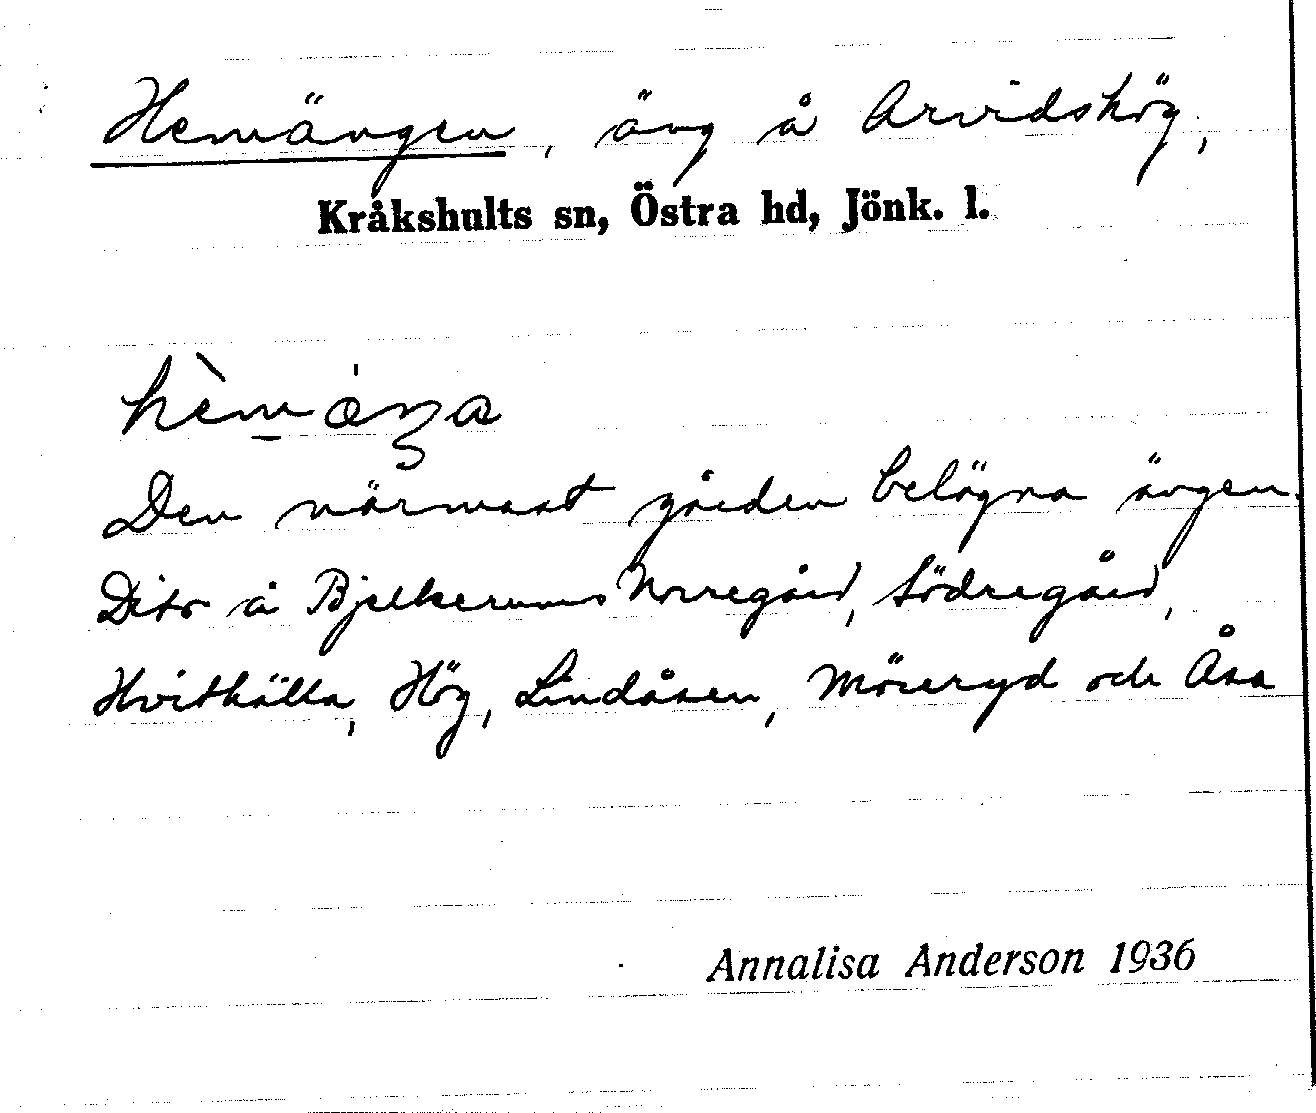 Hemängen, äng å Arvidshög,
Kråkshults sn, Östra hd, Jönk. l.
Den närmast gården belägna ängen.
Dito å Bjelkerums Norregård, Södregård,
Hvitkälla, Hög, Lindåsen, Möreryd och Åsa
Annalisa Anderson 1936